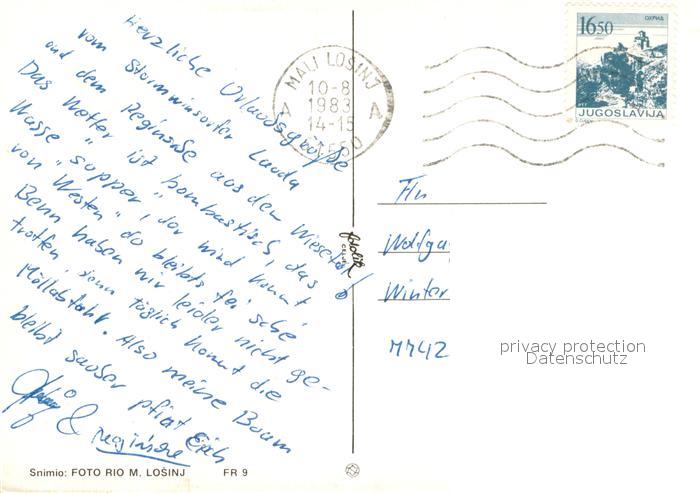 Herzliche Urlaubsgrüße
vom Sturmwinsurfer Lauda
und dem Reginsle aus dem Wiesetal
Das Wetter ist bombastisch, das
Wasse "supper", dor wind kommt
von Westen, do bleibts fei schö
Benn haben wir leider nicht ge-
troffen, sonn täglich kommt die
Müllabfuhr. Also meine Buam
bleibt sauber pfiat Eich
& Reginsle
MALI LOŠINJ
10-8
1983
14-15
A A
ОХРИД
1650
JUGOSLAVIJA
An
Wolfga
Winter
7742
privacy protection
Datenschutz
Snimio: FOTO RIO M. LOŠINJ FR 9